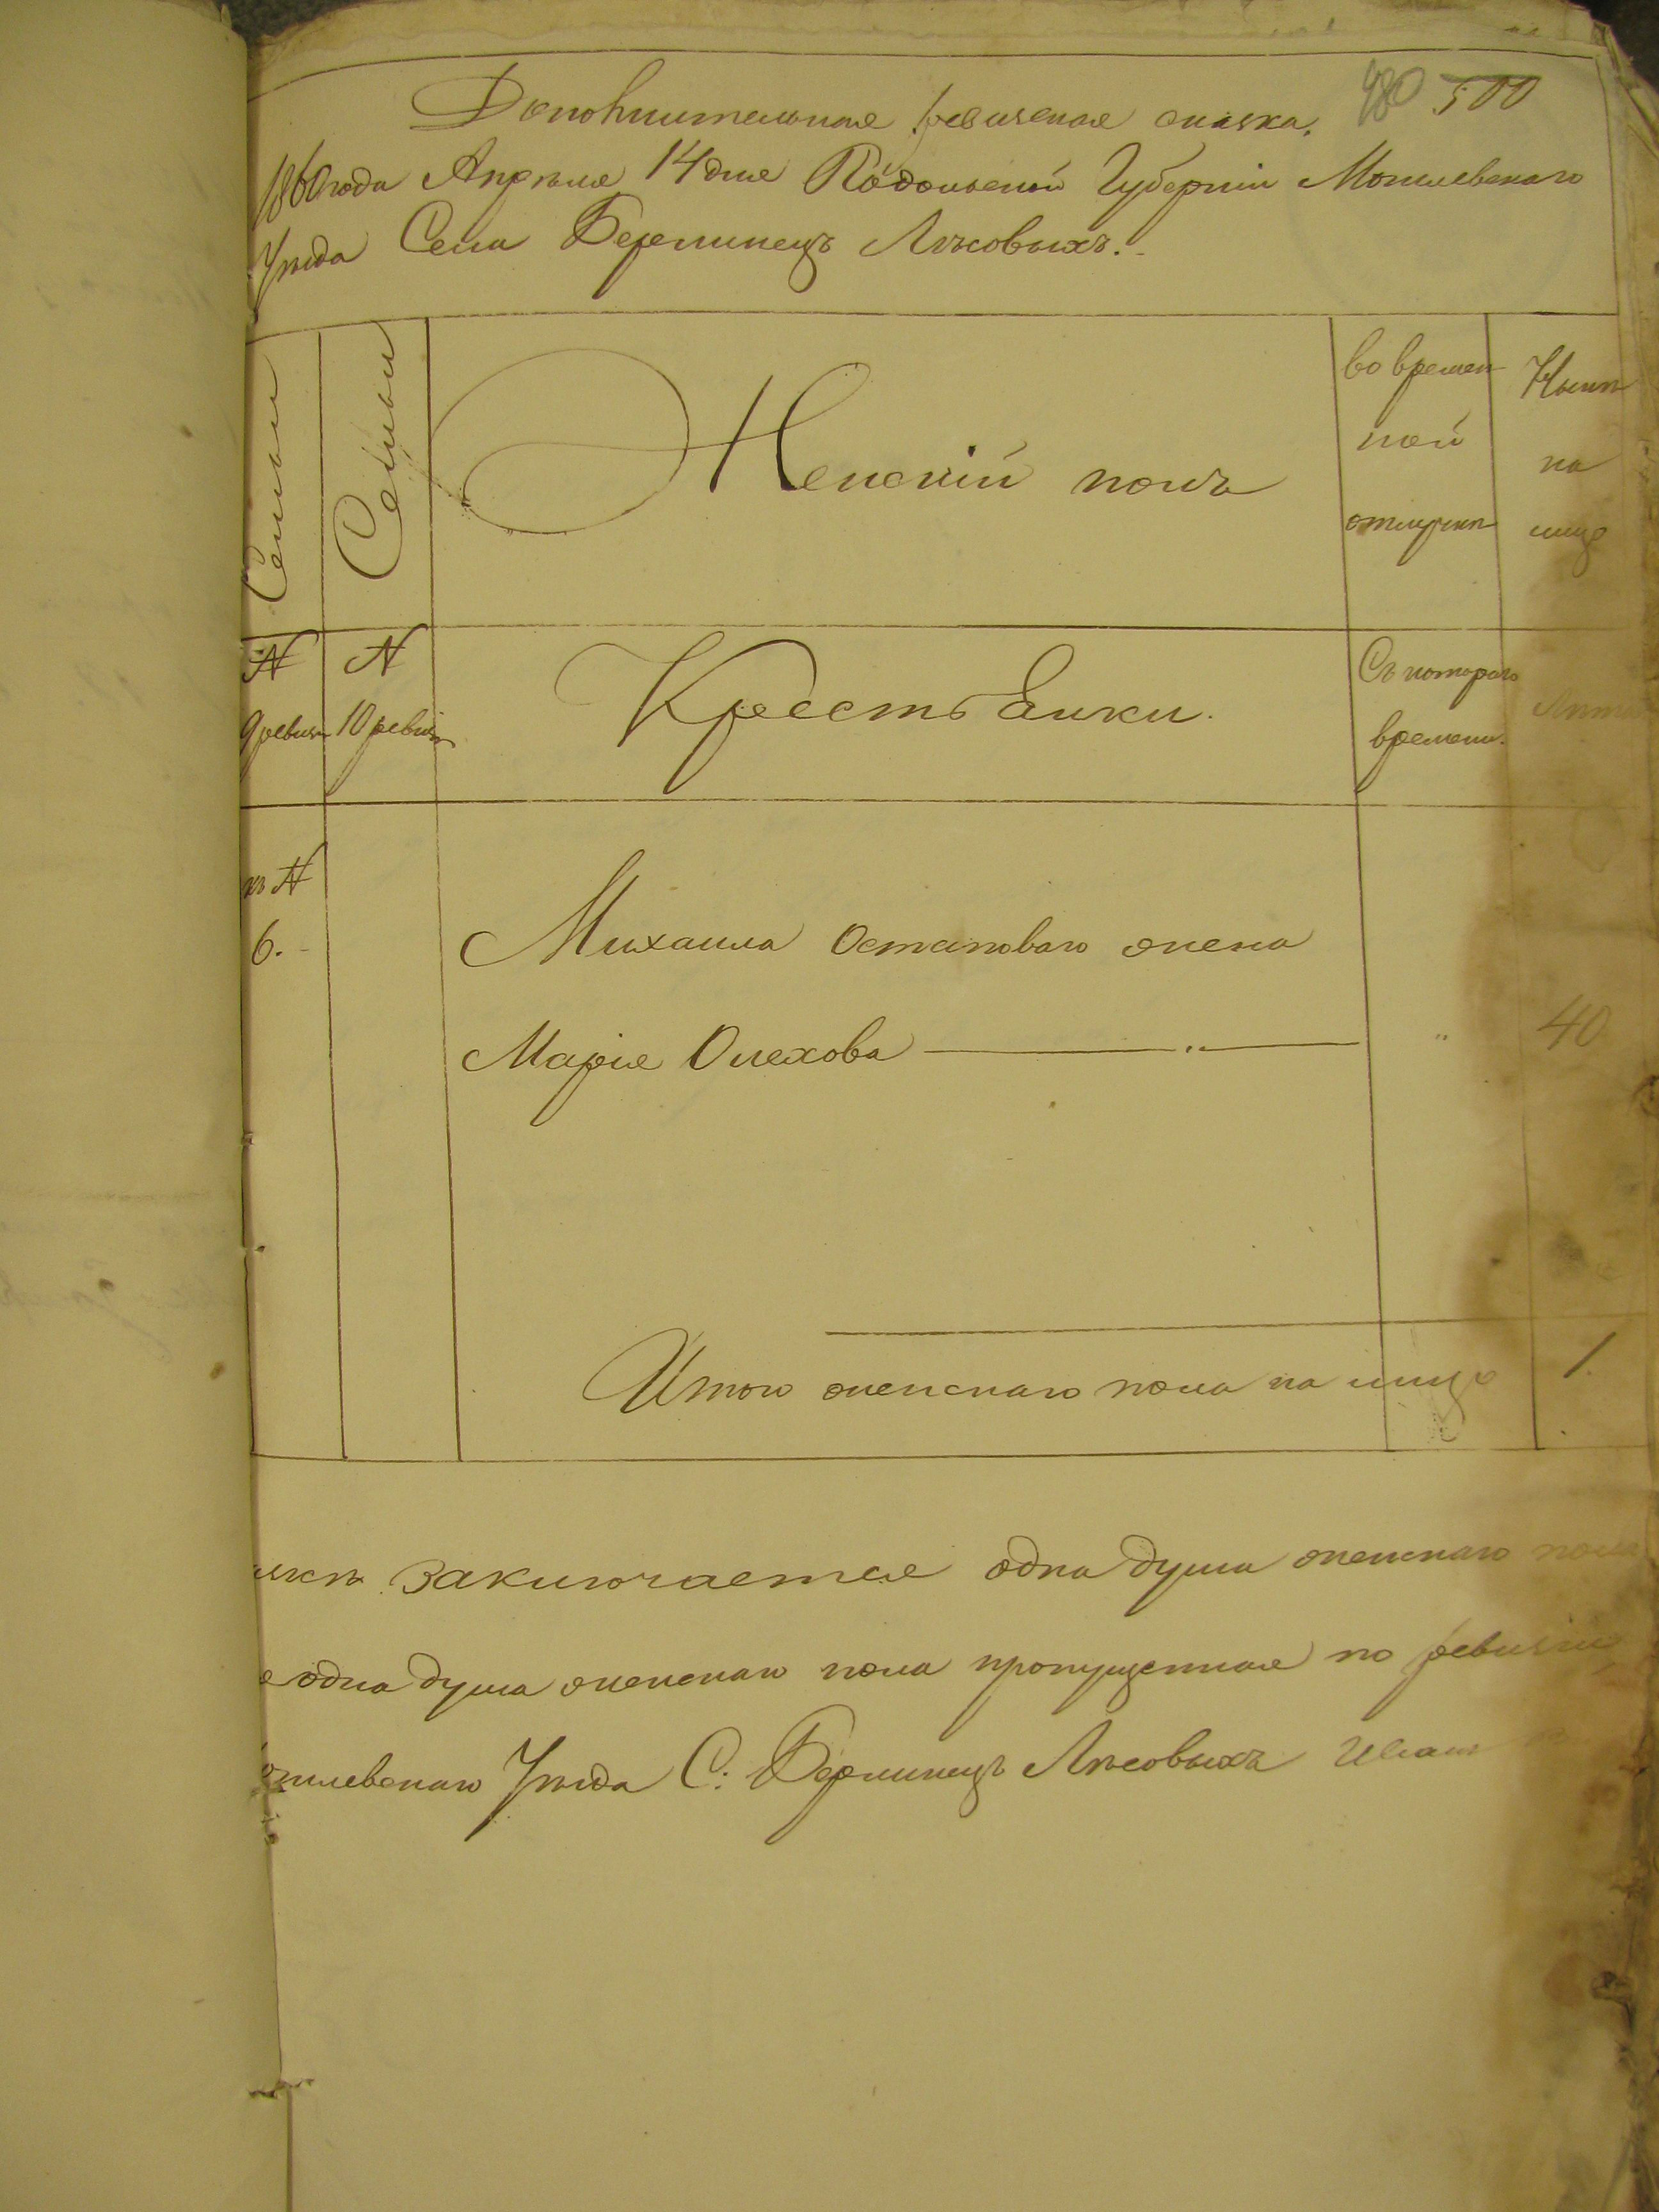 Дополнительная ревизская сказка. 480 500
1860 года Апреля 14 дня Подольской Губерніи Могилевскаго
Уѣзда Села Берлинецъ Лѣсовыхъ.
Семьи Семьи Женскій полъ во времен Нынѣ
ной на
отлучкѣ лицо
№ № Крестьянки. Съ котораго Лѣта
9 ревизи 10 ревизи времени.
къ №
6. Михаила Остаповаго жена
Марія Олехова " 40
Итого женскаго пола на лицо 1.
заключается одна душа женскаго пола
одна душа женскаго пола пропущенная по ревизіи
огилевскаго Уѣзда С. Берлинецъ Лѣсовыхъ